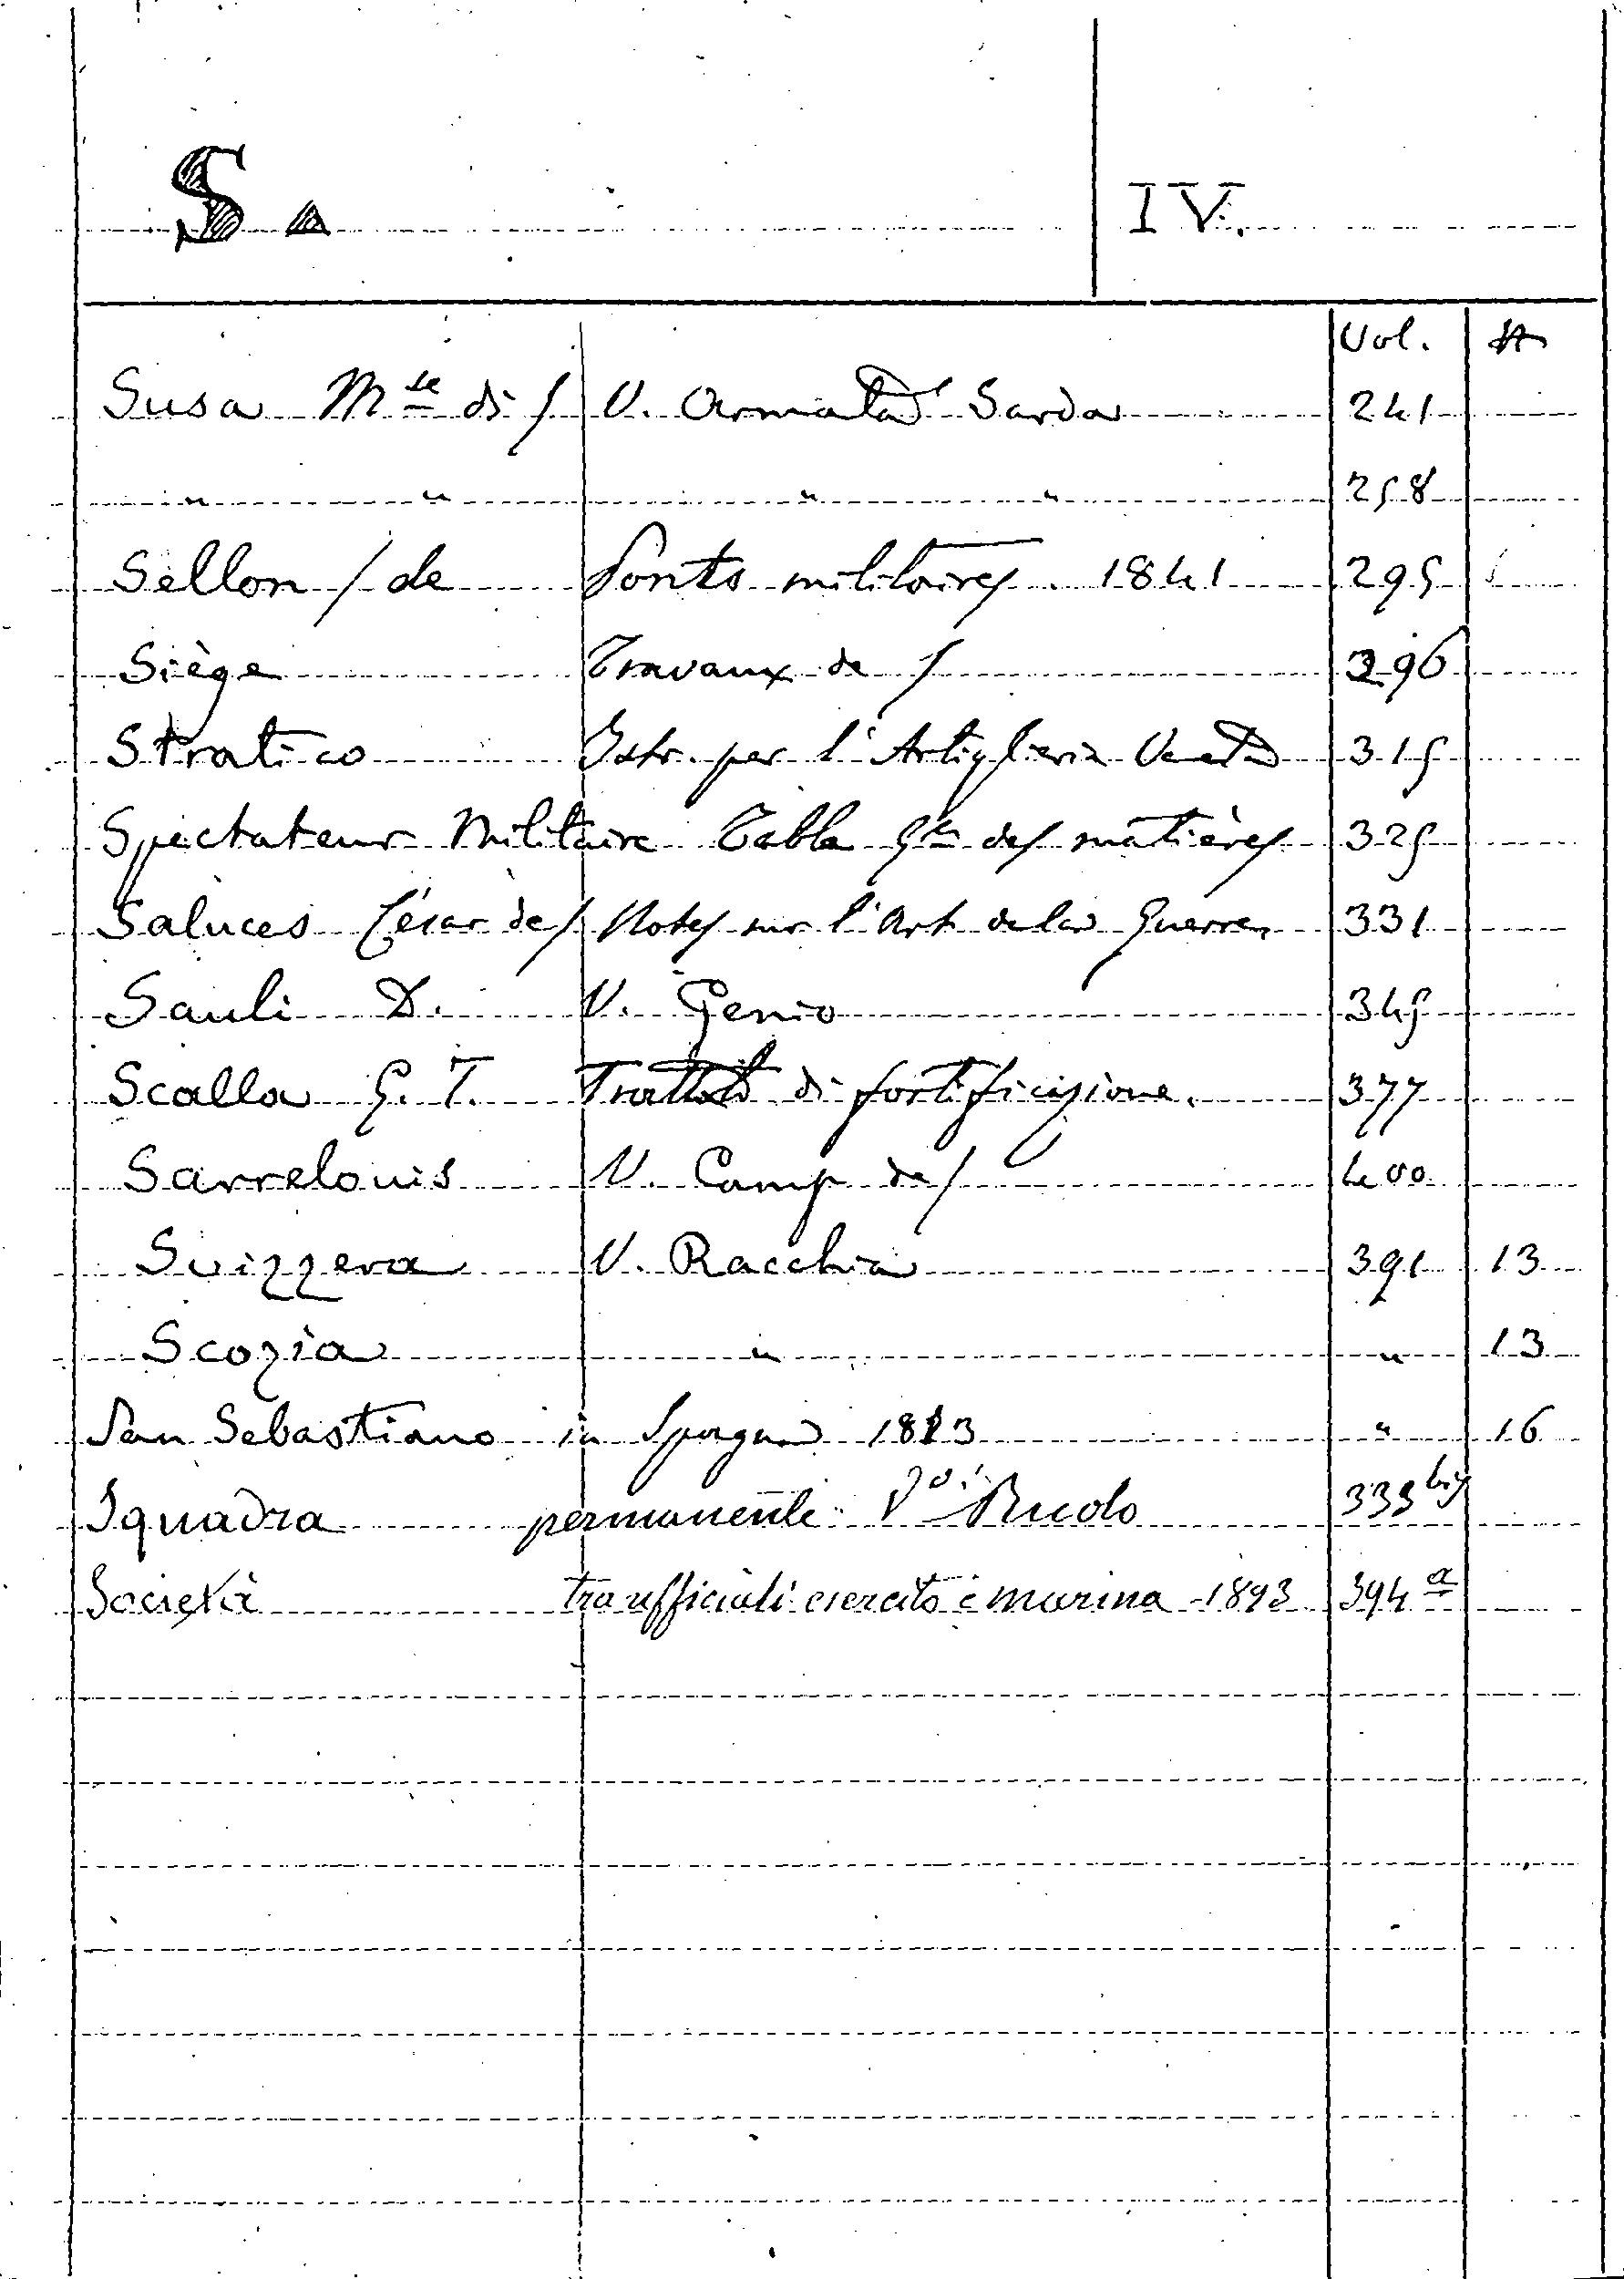 S. IV.
Vol. A
Susa M.se di / V. Armata Sarda 241
" " " " 258
Sellon / de Ponts militaires. 1841 295
Siège Travaux de / 296
Stratico Istr. per l'Artiglieria Veneta 315
Spectateur Militaire Table Gle des matières 325
Saluces César de / Notes sur l'Art de la Guerre 331
Sauli D. V. Genio 345
Scalla G. T. Trattato di fortificazione. 377
Sarrelouis V. Camp de / 400
Svizzera V. Racchia 391 13
Scozia " " 13
San Sebastiano in Spagna 1823 " 16
Squadra permanente 333 bis
Società tra ufficiali esercito e marina 1893 394 a